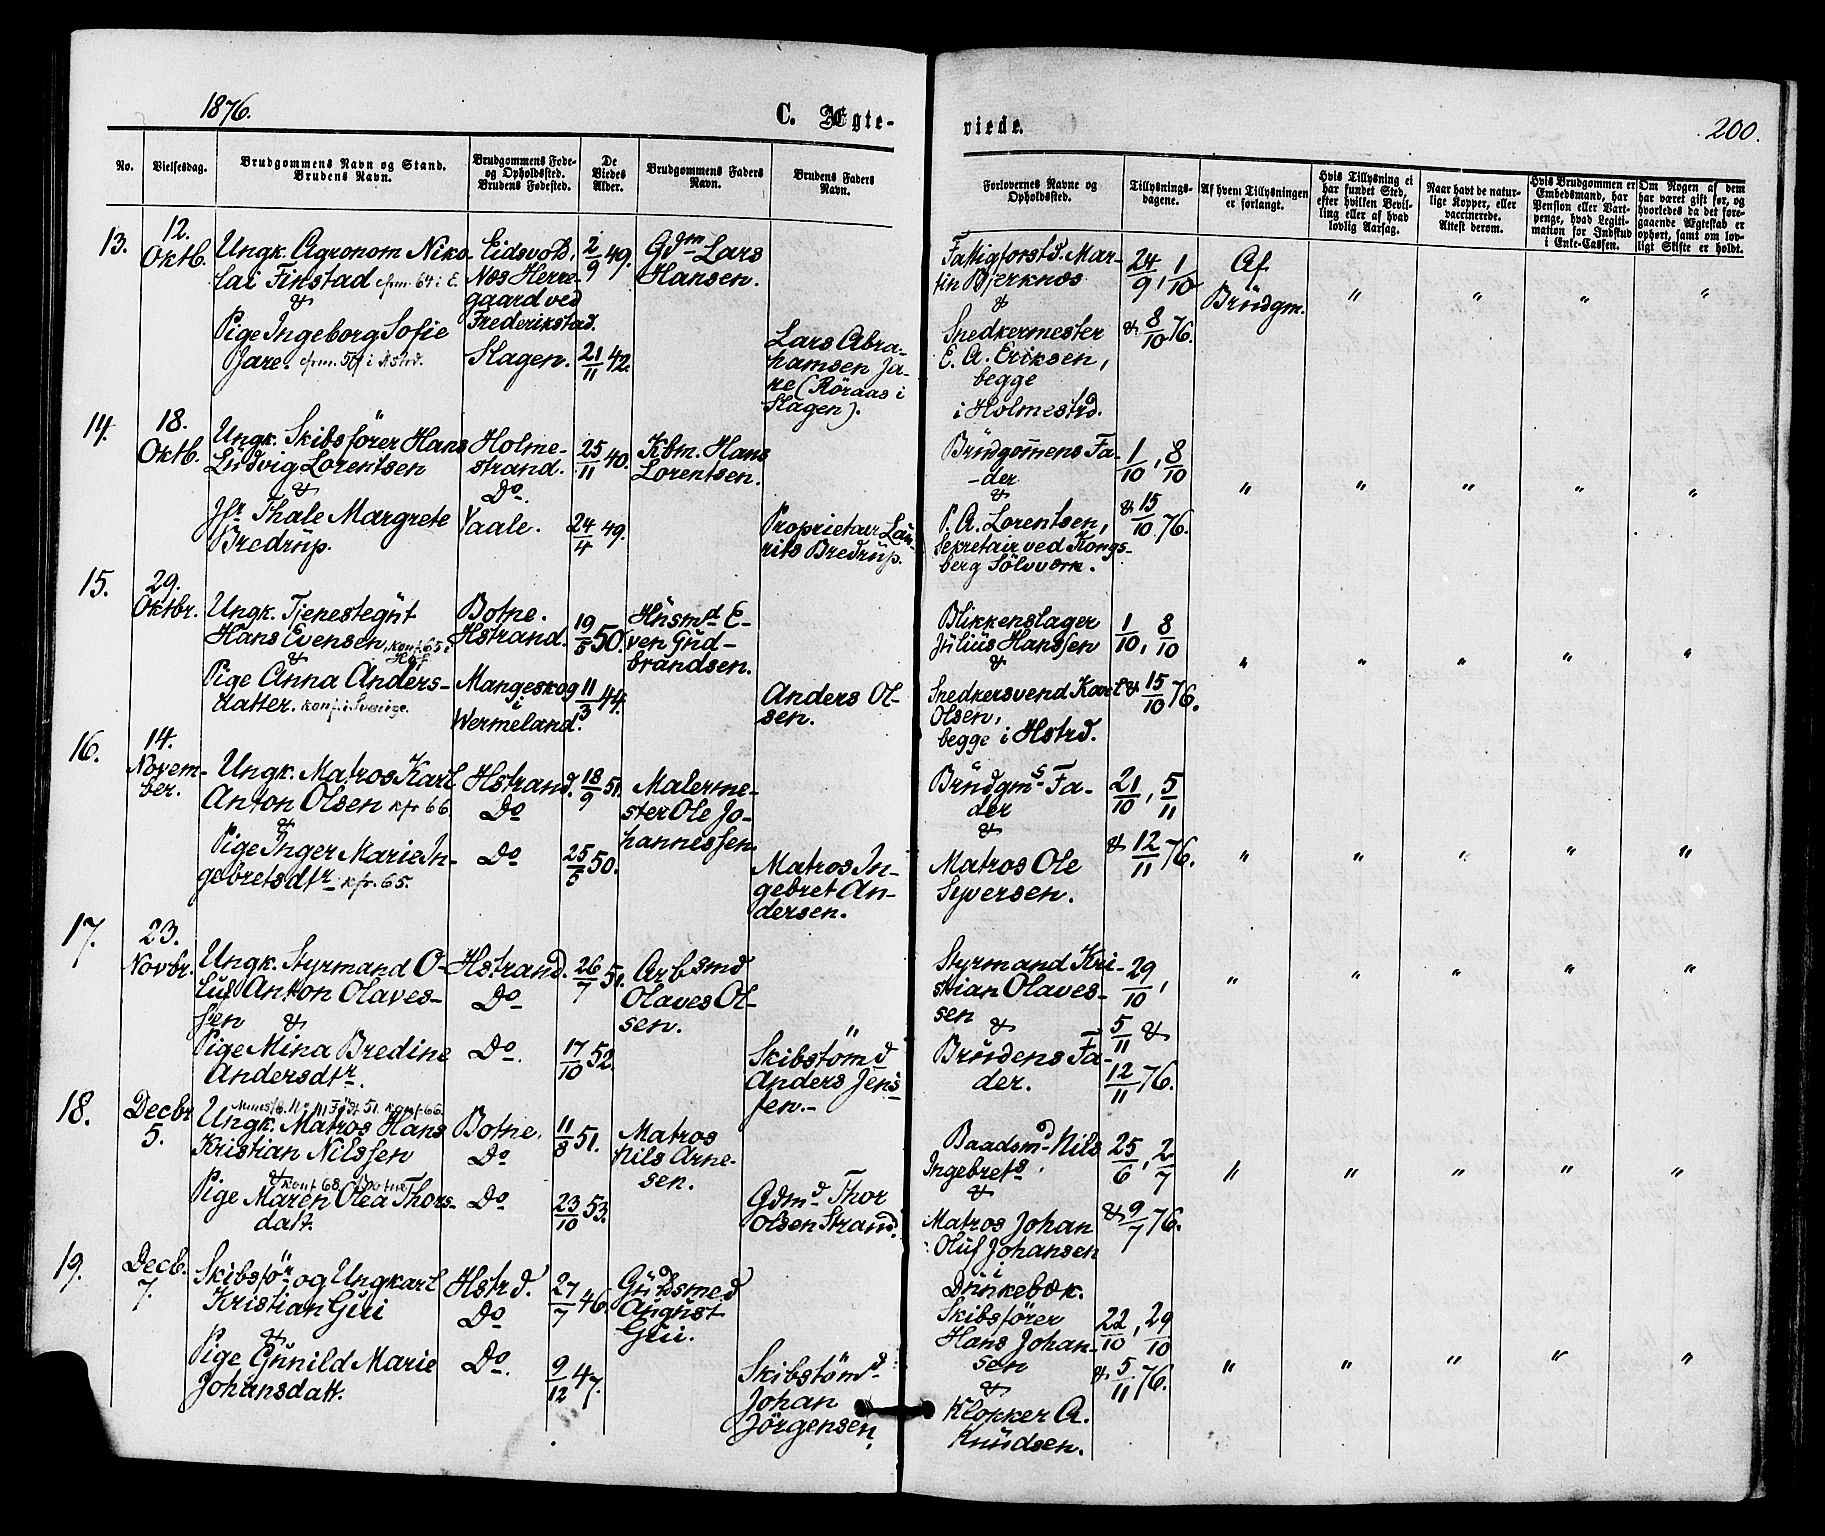 1876.
C. Ægte-
viede.
200.
No.
Vielsesdag.
Brudgommens Navn og Stand.
Brudens Navn.
Brudgommens Føde-
og Opholdssted.
Brudens Fødested.
De
Viedes
Alder.
Brudgommens Faders
Navn.
Brudens Faders
Navn.
Forlovernes Navne og
Opholdssted.
Tillysnings-
dagene.
Af hvem Tillysningen
er forlangt.
Hvis Tillysning ei
har fundet Sted,
efter hvilken Bevil-
ling eller af hvad
lovlig Aarsag.
Naar havt de natur-
lige Kopper, eller
vaccinerede.
Attest derom.
Hvis Brudgommen er
Embedsmand, har
Pension eller Vart-
penge, hvad Legiti-
mation for Indskud
i Enke-Cassen.
Om Nogen af dem
har været gift før, og
hvorledes da det fore-
gaaende Ægteskab er
ophørt, samt om lov-
ligt Skifte er holdt.
13.
12.
Oktb.
Ungk. Agronom Niko-
lai Finstad cfrm. 64 i E.
&
Pige Ingeborg Sofie
Jare. cfrm. 57 i Astrd.
Eidsvold,
Næs Herre-
gaard ved
Frederikstad.
Slagen.
2/9 49.
21/11 42.
Gdm Lars
Hansen.
Lars Abra-
hamsen Ja-
re (Röraas i
Slagen).
Fattigforstd. Mar-
tin Bjerknæs
&
Snedkermester
E. A. Eriksen,
begge
i Holmestrd.
24/9, 1/10
& 8/10 76.
Af
Brudgm.
" " " "
14.
18.
Oktb.
Ungk. Skibsfører Hans
Ludvig Lorentsen
&
Jfr Thale Margrete
Bredrup.
Holme-
strand.
Do.
Vaale.
25/11 40.
24/4 49.
Kbm. Hans
Lorentsen.
Proprietær Lau-
rits Bredrup.
Brudgommens Fa-
-der
&
P. A. Lorentsen,
Sekretair ved Kongs-
berg Sölvværk.
1/10, 8/10
& 15/10 76.
" " " " "
15.
29.
Oktbr.
Ungk. Tjenestegut
Hans Evensen, konf. 65 i
Hof
&
Pige Anna Anders-
datter. konf. i Sverige.
Botne.
Hstrand.
Mangeskog
i
Wermeland.
19/5 50.
11/3 44.
Husmd E-
ven Gud-
brandsen.
Anders Ol-
sen.
Blikkenslager
Julius Hanssen
&
Snedkersvend Karl
Olsen,
begge i Hstrd.
1/10, 8/10
& 15/10 76.
" " " " "
16.
14.
Novem-
ber.
Ungk. Matros Karl
Anton Olsen kfr. 66.
&
Pige Inger Marie In-
gebretsdtr. kfr. 65.
Hstrand.
Do
Do
18/9 51.
25/5 50.
Malerme-
ster Ole Jo-
hannessen.
Matros In-
gebret An-
dersen.
Brudgms Fa-
der
&
Matros Ole
Syversen.
21/10, 5/11
& 12/11 76.
" " " " "
17.
23.
Novbr.
Ungk. Styrmand O-
luf Anton Olaves-
sen &
Pige Mina Bredine
Andersdtr.
Hstrand.
Do
Do.
26/7 51.
17/10 52.
Arbsmd
Olaves Ol-
sen.
Skibstömd
Anders Jens-
sen.-
Styrmand Kri-
stian Olaves-
sen
&
Brudens Fa-
der.
29/10,
5/11 &
12/11 76.
" " " " "
18.
Decbr
5.
Födt 51. konf. 66.
Ungk. Matros Hans
Kristian Nilssen
& konf 68. Botne
Pige Maren Olea Thors-
datt.
Botne.
Do
Do
11/8 51.
23/10 53.
Matros
Nils Arne-
sen.
Gdmd Thor
Olsen Strand.
Baadsmd Nils
Ingebrets.
&
Matros Johan
Oluf Johansen
i
Dunkebæk.
25/6, 2/7
& 9/7 76.
" " " " "
19.
Decb.
7.
Skibsför og Ungkarl
Kristian Gui
&
Pige Gunild Marie
Johansdatt.
Hstrd.
Do
Do.
27/7 46.
9/12 47.
Guldsmed
August
Gui.
Skibstömd
Johan
Jörgensen.
Skibsfører
Hans Johan-
sen
&
Klokker A.
Knudsen.
22/10, 29/10
& 5/11 76.
" " " " "